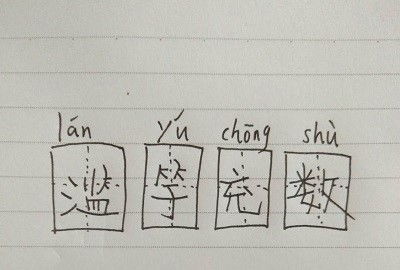 lán yú chōng shù
滥竽充数